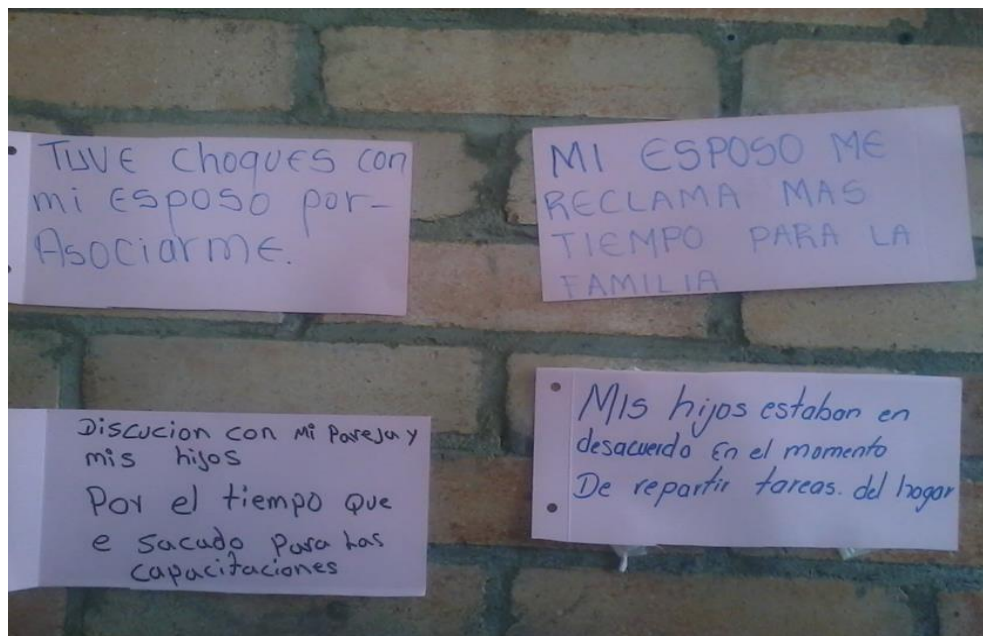 TUVE choques con
mi esposo por-
Asociarme.
MI ESPOSO ME
RECLAMA MAS
TIEMPO PARA LA
FAMILIA
Discucion con mi Pareja y
mis hijos
Por el tiempo que
e sacado para las
capacitaciones
Mis hijos estaban en
desacuerdo En el momento
De repartir tareas. del hogar